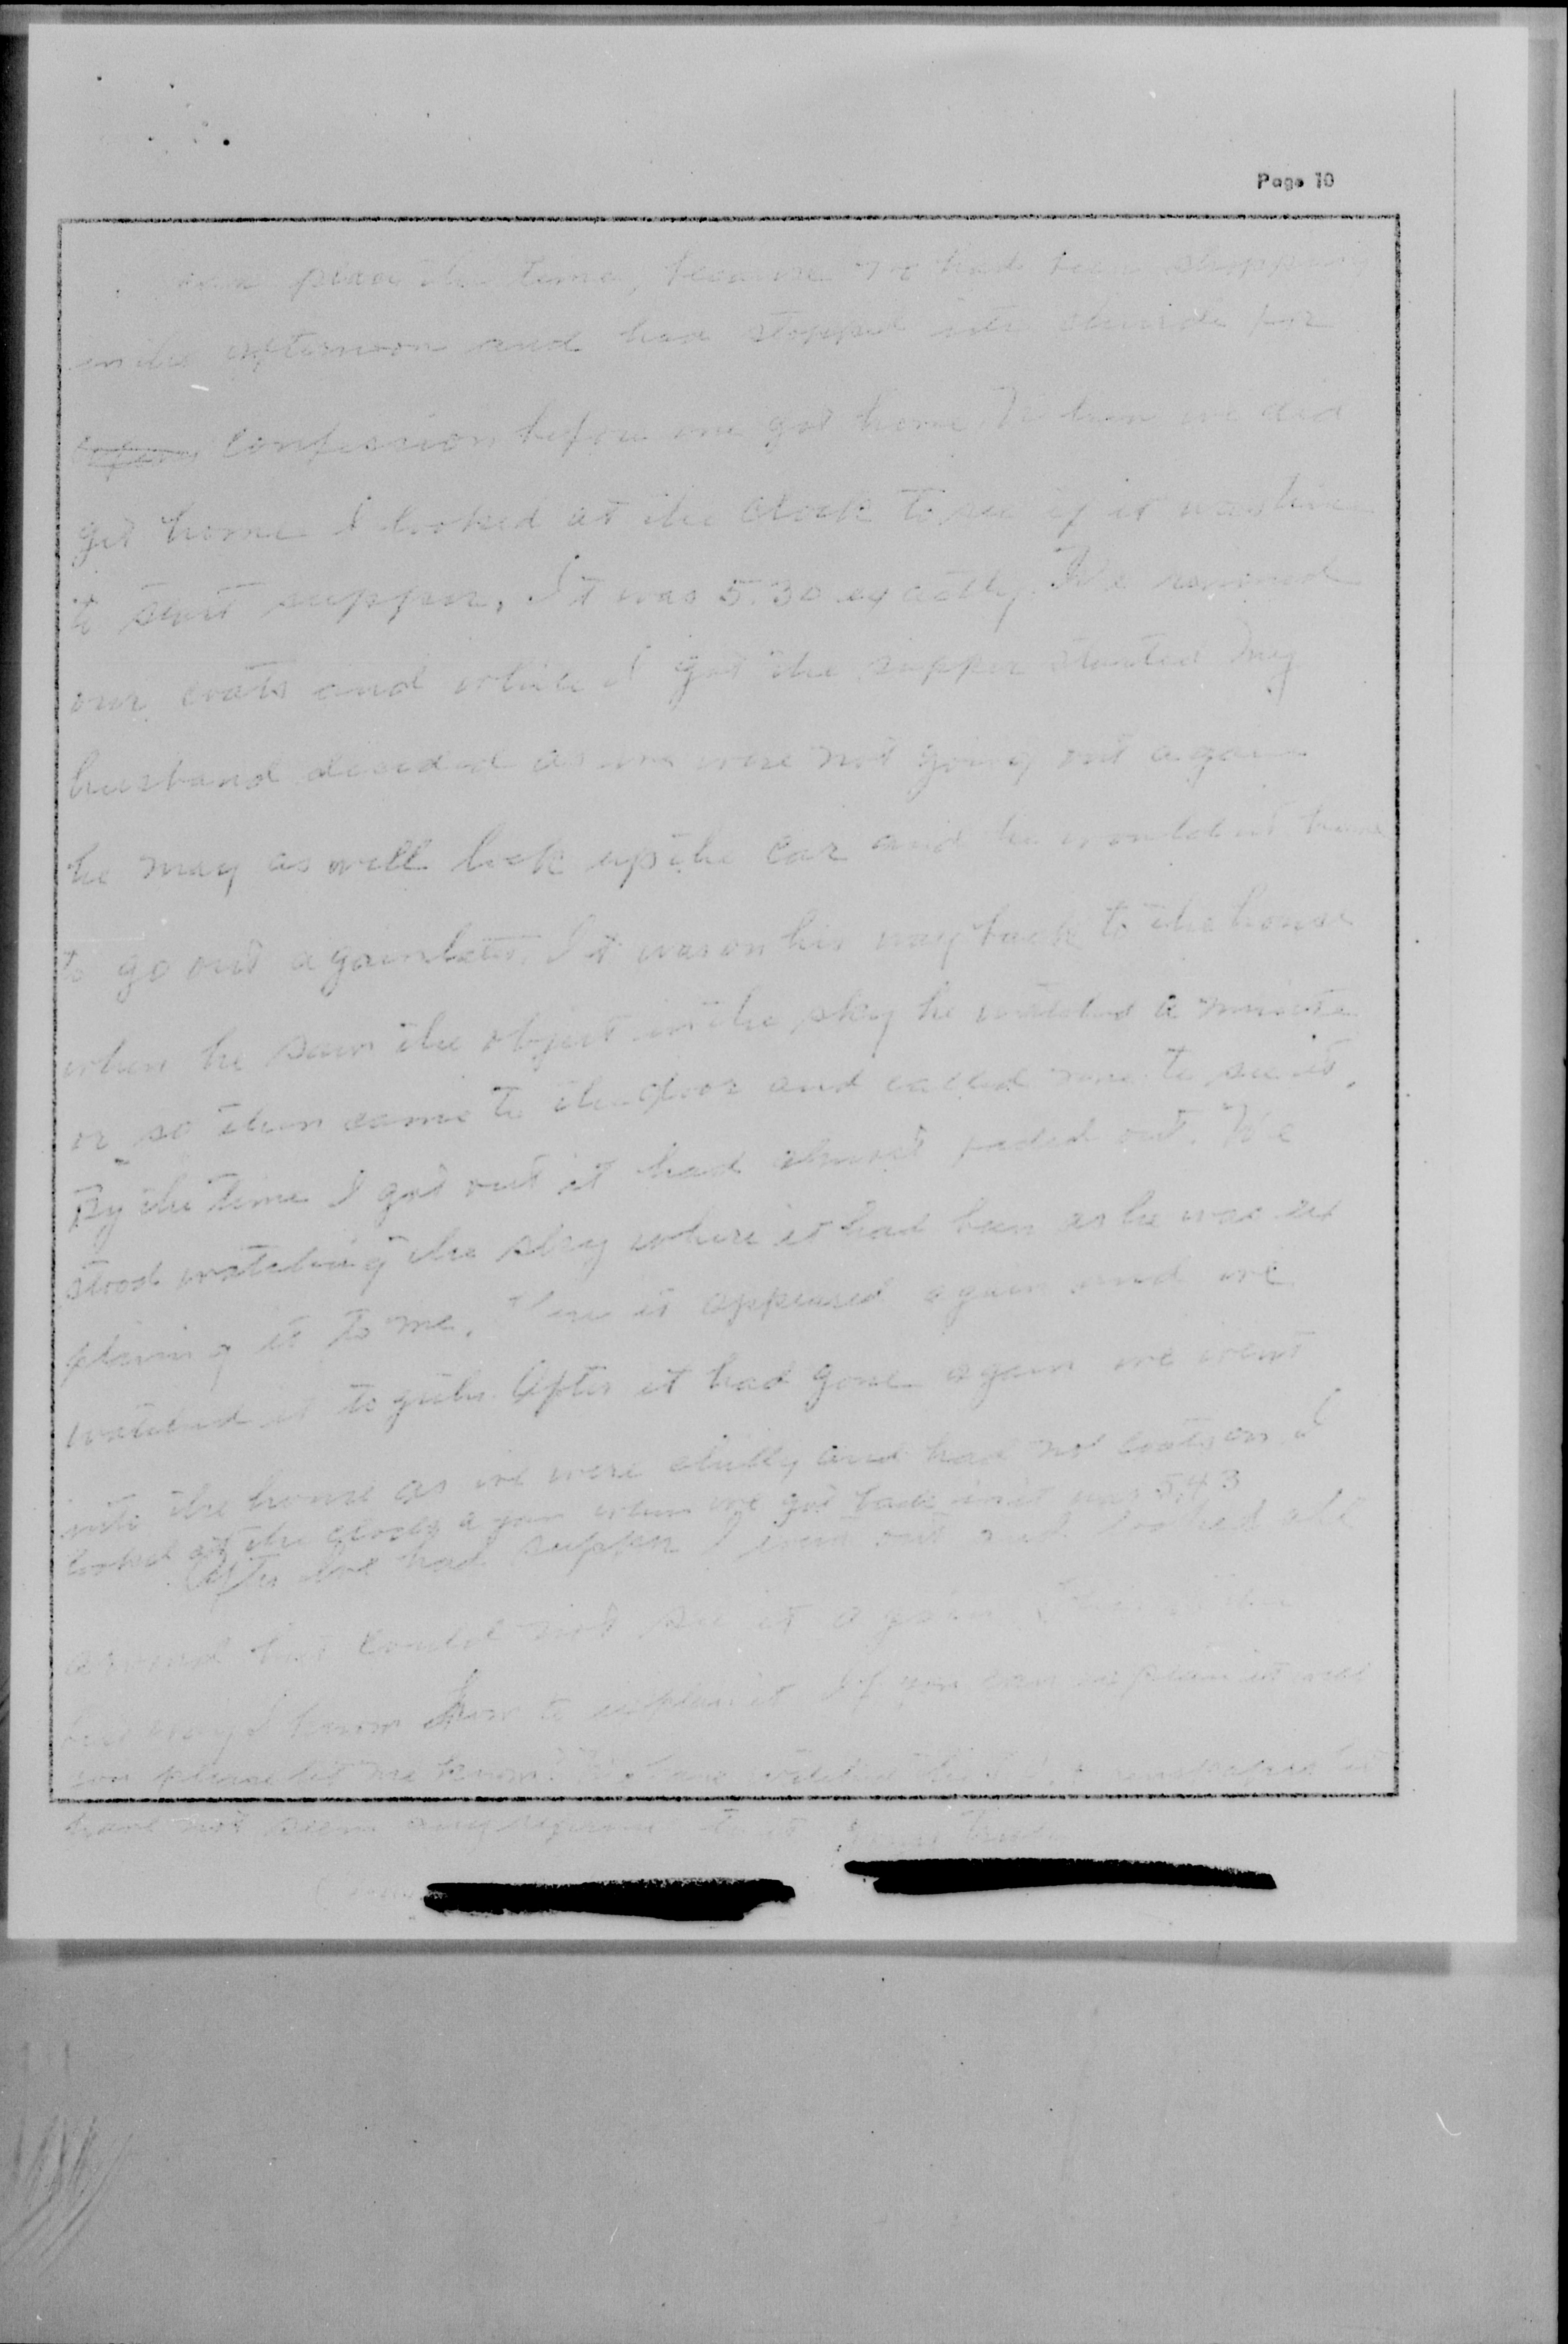 Page 10
place the time, because we had been shopping
in the afternoon and had stopped into church for
confession before we got home. When we did
get home I looked at the clock to see if it was time
to start supper. It was 5:30 exactly. We removed
our coats and while I got the supper started my
husband decided as we were not going out again
he may as well lock up the car and he wouldent have
to go out again later. It was on his way back to the house
when he saw the object in the sky he watched a minute
or so then came to the door and called me to see it.
By the time I got out it had almost faded out. We
stood watching the sky where it had been as he was ex
plaining it to me. Then it appeared again and we
watched it together. After it had gone again we went
into the house as we were chilly and had not coats on. I
looked at the clock again when we got back in it was 5:43
After we had supper I went out and looked all
around but could not see it again. This is the
best way I know how to explain it. If you can explain it will
you please let me know. We have watched the newspapers but
have not seen any to it Yours Truly